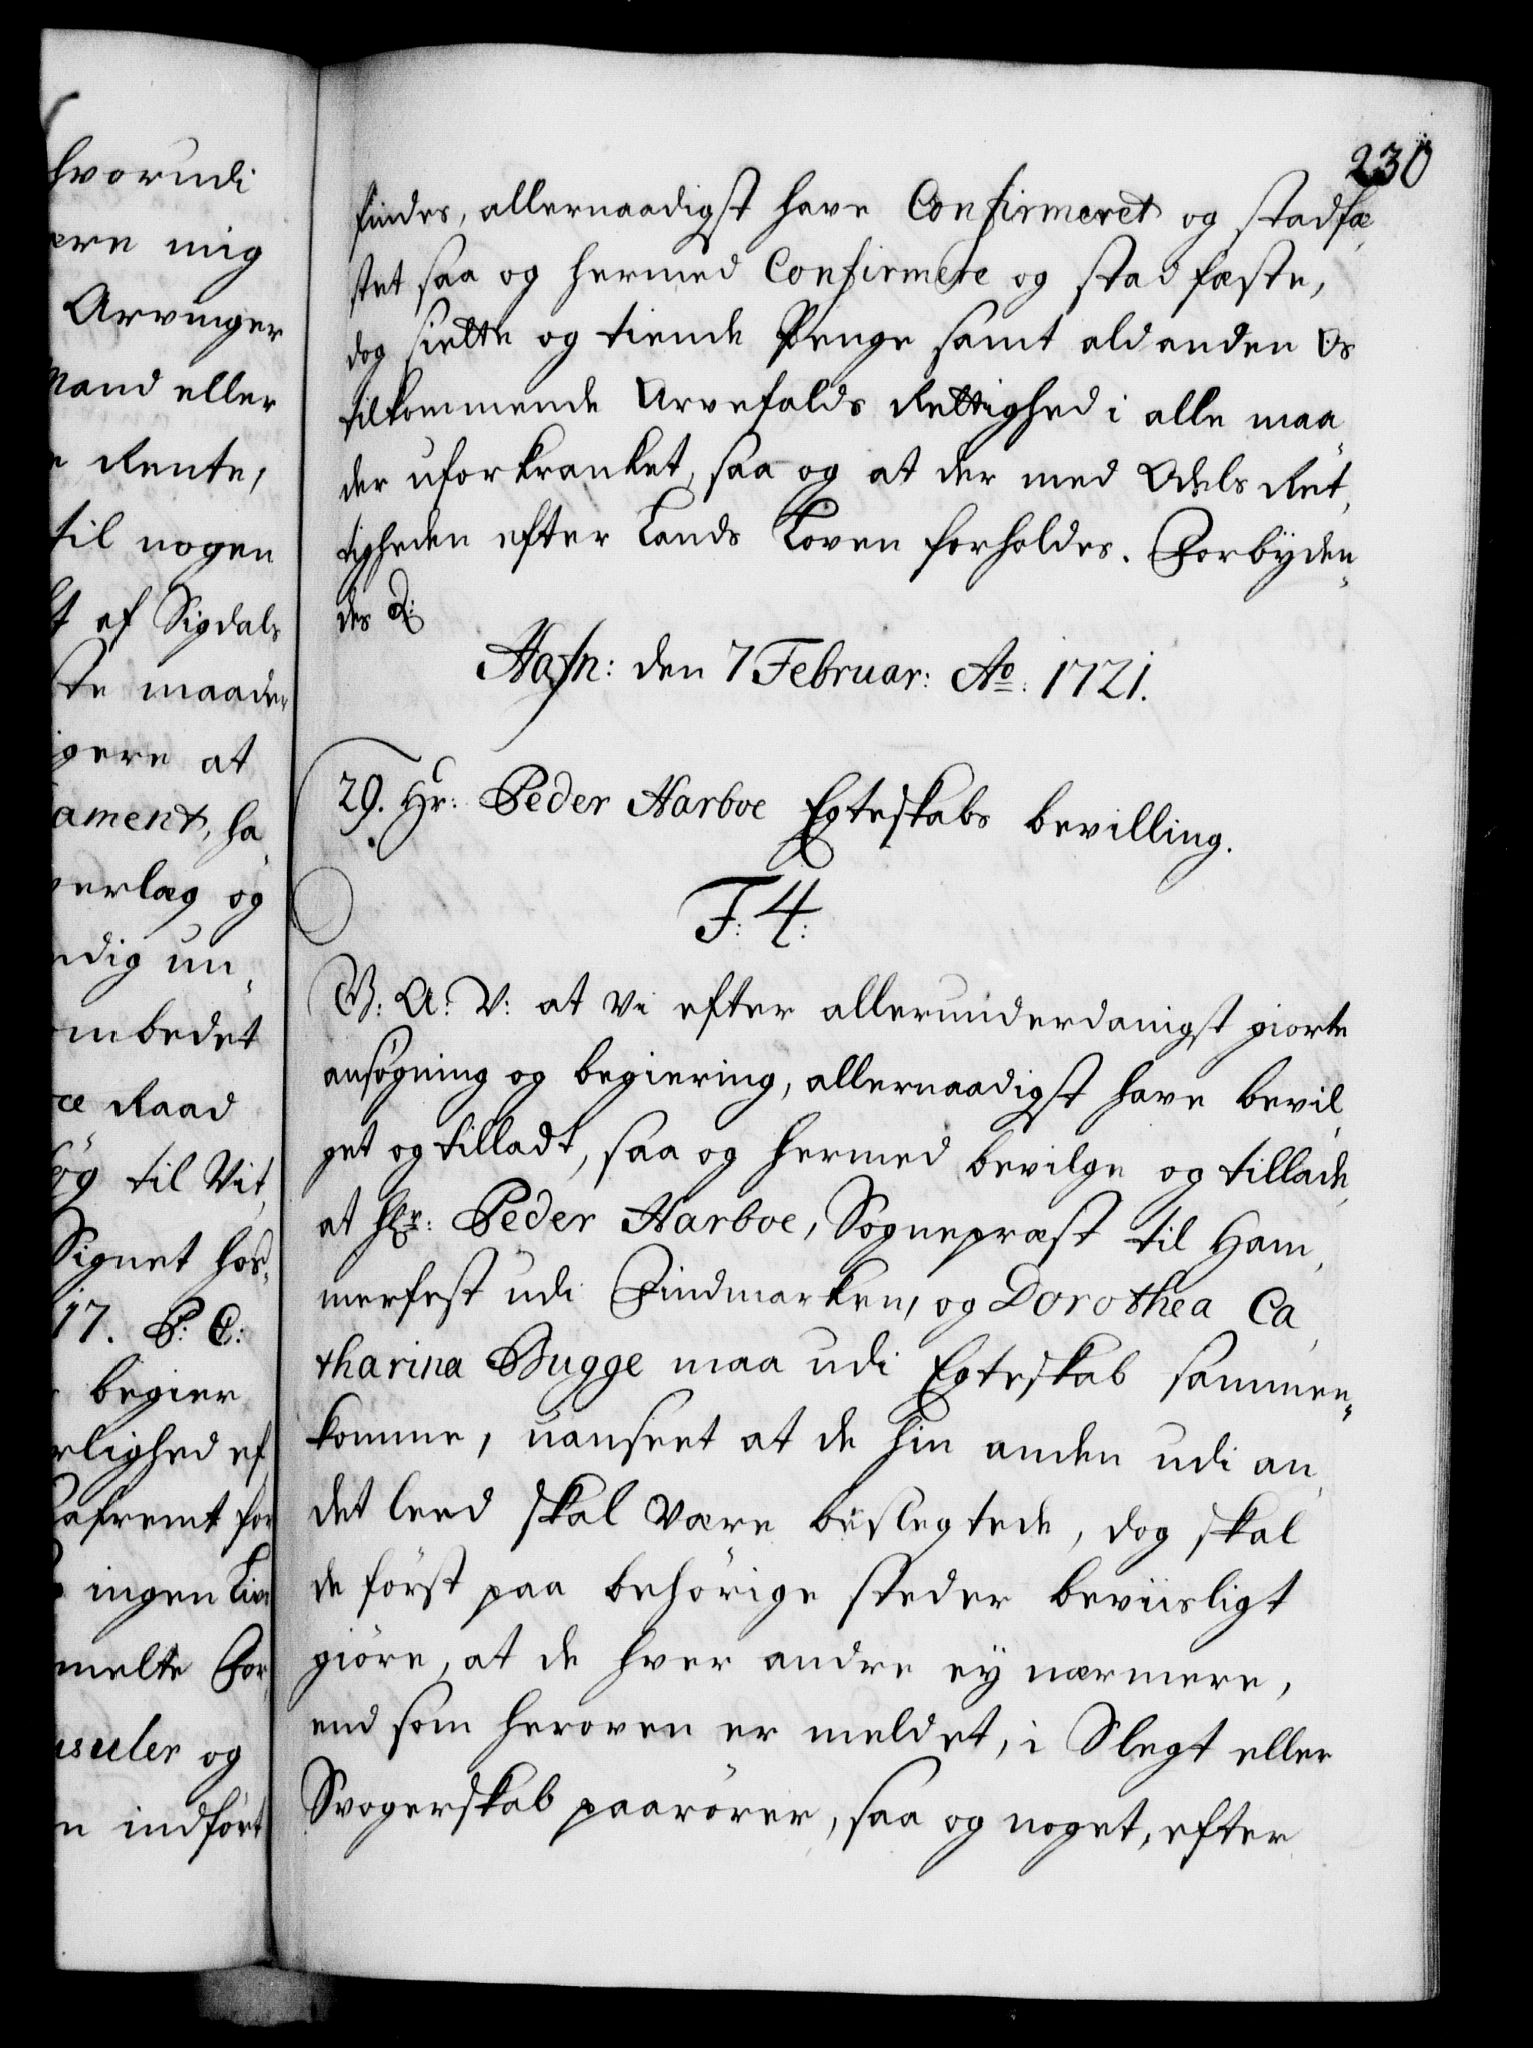 hvorudi
ere mig
Arvinger
Mand eller
e Rente,
til nogen
t af Sigdals
te maader
gere at
ament, ha,
verlæg og
ndig un,,
ombedet
ræ Raad
sög til Vit,
Signet hos,,
17. P: C:
begier
rlighed ef,
afremt for
ingen Liv
melte For,
usuler og
n indfört
230
findes, allernaadigst have Confirmeret og stadfæ,
stet saa og hermed Confirmere og stadfæste,
dog siette og tiende Penge samt ald anden Os
tilkommende Arvefalds Rettighed i alle maa,,
der uforkranket, saa og at der med Odels Ret,
tigheden efter Lands Loven forholdes. Forbÿden,,
des &:
Hafn: den 7 Februar: Ao: 1721.
29. Hr: Peder Harboe Egteskabs bevilling.
F: 4:
G: A: V: at Vi efter allerunderdanigst giorte
ansögning og begiering, allernaadigst have bevil,
get og tilladt, saa og hermed bevilge og tillade,
at Hr: Peder Harboe, Sognepræst til Ham,
merfest udi Findmarken, og Dorothea Ca,
tharina Bugge maa udi Egteskab sammen,,
komme, uanseet at de hin anden udi an,
det leed skal være beslegtede, dog skal
de först paa behörige steder beviisligt
giöre, at de hver andre eÿ nærmere,
end som heroven er meldet, i Slegt eller
Svogerskab paarörer, saa og noget, efter